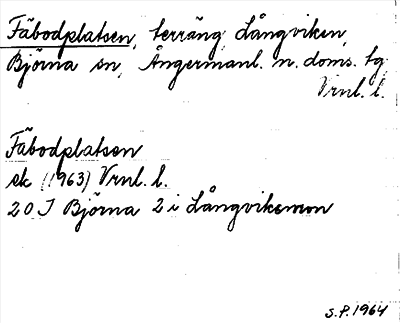 Fäbodplatsen, terräng, Långviken,
Björna sn, Ångermanl. n. doms. tg
Vrnl. l.
Fäbodplatsen
ek (1963) Vrnl. l.
20 J Björna 2 i Långviksmon
S.P. 1964